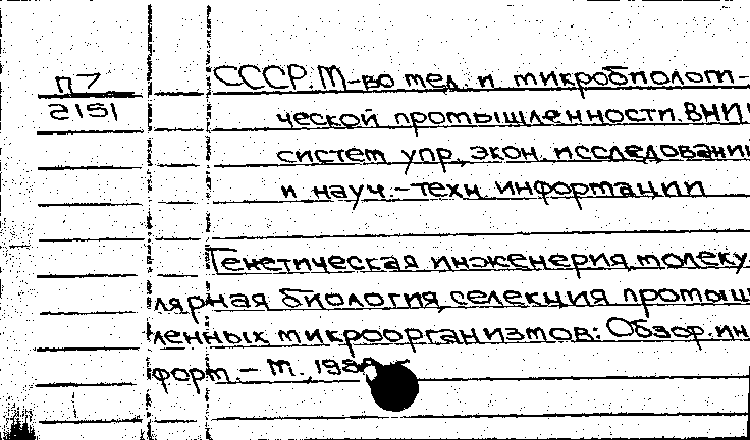 П7
2151
СССР. М-во мед. и микробиологи-
ческой промышленности. ВНИИ
систем упр., экон. исследований
и науч.-техн. информации
Генетическая инженерия, молеку-
лярная биология, селекция промыш-
ленных микроорганизмов: Обзор. ин-
форм. — М.,